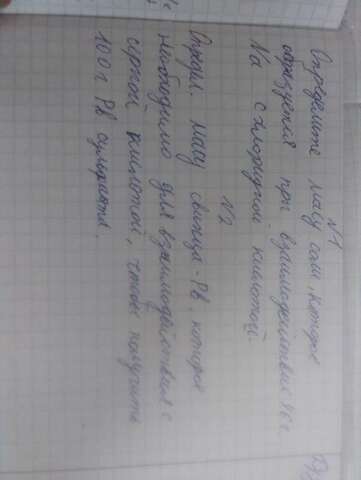 №1
Определите массу соли, которая
образуется при взаимодействии 46 г
Na с хлоридной кислотой.
№2
Опред. массу свинца - Pb, которая
необходимо для взаимодействия с
серной кислотой, чтобы получить
100 г Pb сульфата.